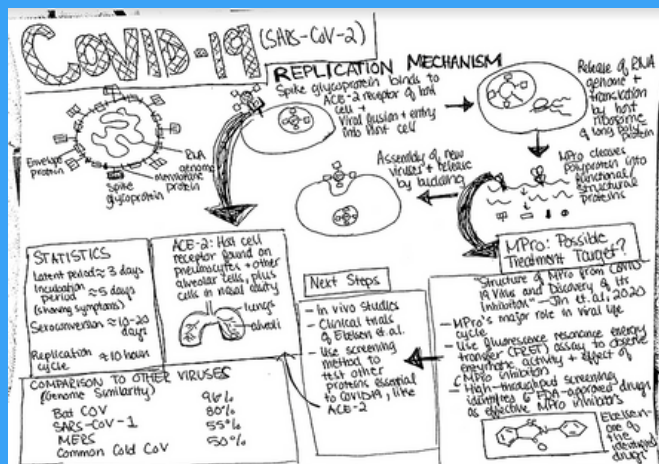 COVID-19 (SARS-CoV-2)
REPLICATION MECHANISM
Spike glycoprotein binds to
ACE-2 receptor of host
cell +
Viral fusion + entry
into host cell
Release of RNA
genome +
translation
by host
ribosome
of long polyprotein
MPro cleaves
polyprotein into
functional/
structural
proteins
Assembly of new
viruses + release
by budding
Envelope
protein
RNA
genome
membrane
protein
Spike
glycoprotein
STATISTICS
Latent period ≈ 3 days
Incubation
period ≈ 5 days
(showing symptoms)
Seroconversion ≈ 10-20
days
Replication
cycle ≈ 10 hours
ACE-2: Host cell
receptor found on
pneumocytes + other
alveolar cells, plus
cells in nasal cavity
lungs
alveoli
COMPARISON TO OTHER VIRUSES
(Genome Similarity)
Bat CoV 96%
SARS-CoV-1 80%
MERS 55%
Common Cold CoV 50%
Next Steps
- In vivo studies
- Clinical trials
of Ebselen et. al.
- Use screening
method to
test other
proteins essential
to COVID19, like
ACE-2
MPro: Possible
Treatment Target?
"Structure of MPro from COVID
19 Virus and Discovery of Its
Inhibitor" - Jin et. al, 2020
- MPro's major role in viral life
cycle
- Use fluorescence resonance energy
transfer (FRET) assay to observe
enzymatic activity + effect of
MPro inhibitors
- High-throughput screening
identifies 6 FDA-approved drugs
as effective MPro inhibitors
Ebselen-
one of
the
identified
drugs